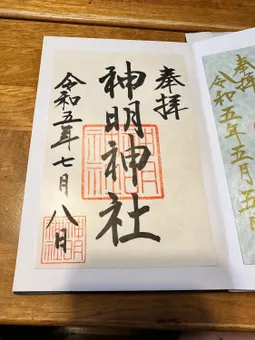 奉拝
神明神社
令和五年七月八日
奉拝
令和五年五月五